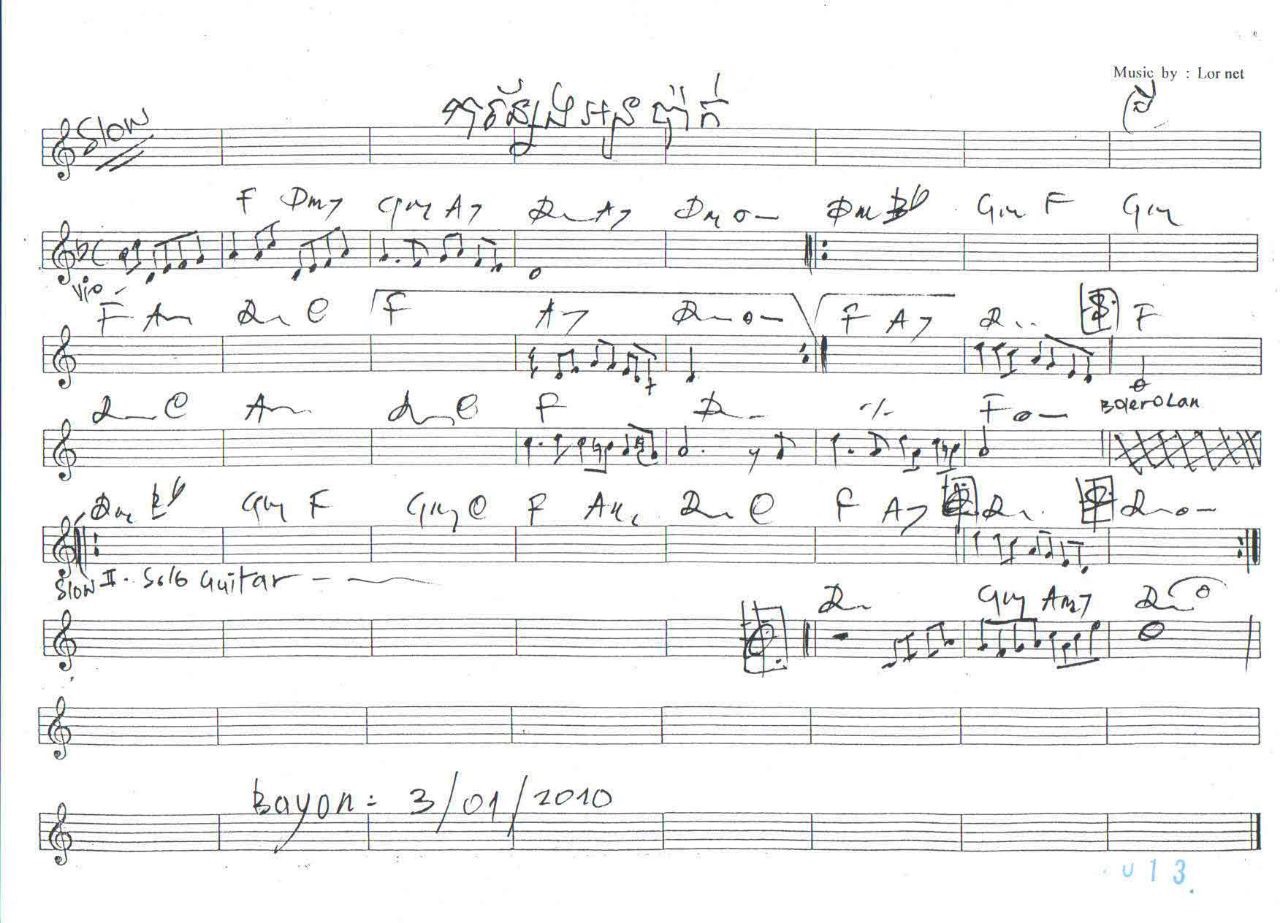 Music by : Lor net
Slow
F Dm7 Gm A7 Dm A7 Dm Dm Bb Gm F Gm
Vio
F Am Dm C F A7 Dm F A7 Dm F
Bolero Lan
Dm C Am Dm C F Dm % F
Dm Bb Gm F Gm C F Am Dm C F A7 Dm Dm
Slow II. Solo Guitar
Dm Gm Am7 Dm
Bayon = 3/01/2010
013.